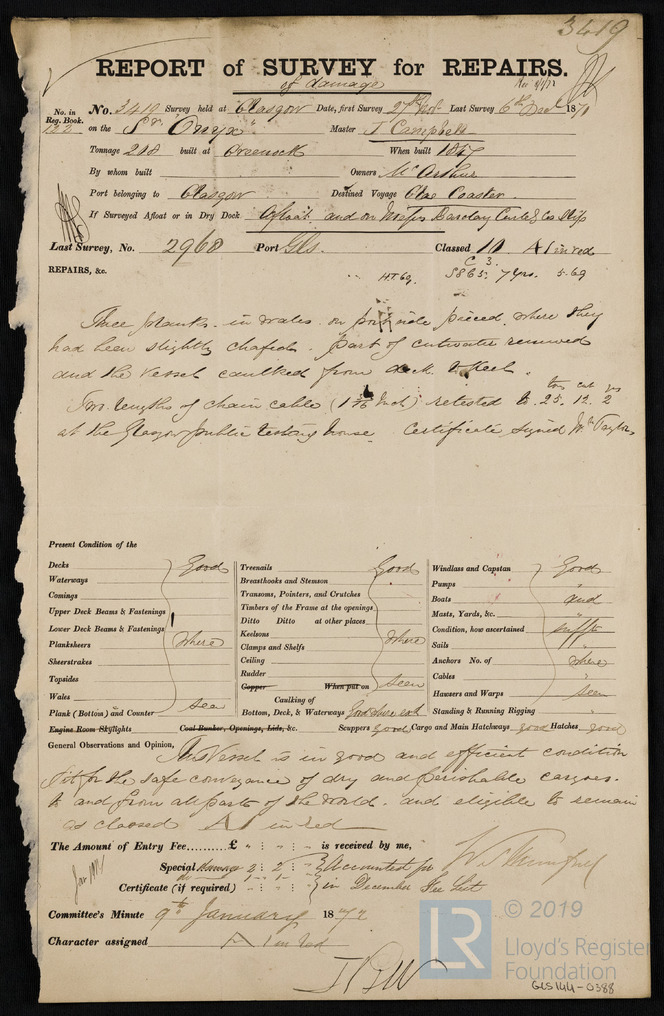 3419
REPORT of SURVEY for REPAIRS.
of damage
No. in Reg. Book. 122
No. 3419 Survey held at Glasgow Date, first Survey 27th Nov. Last Survey 6th Dec. 1871
on the Sr. Onyx Master J Campbell
Tonnage 218 built at Greenock When built 1847
By whom built Owners McArthur
Port belonging to Glasgow Destined Voyage Coaster
If Surveyed Afloat or in Dry Dock Afloat and on Messrs Barclay Curle & Co Slip
Last Survey, No. 2968 Port Gls. Classed A1 in red
REPAIRS, &c. 7 Yrs. 5.69
Three planks in wales on port side pieced where they
had been slightly chafed. Part of cutwater renewed
and the vessel caulked from deck to keel.
tons cwt qrs
Two lengths of chain cable (1 Inch) retested to 25. 12. 2
at the Glasgow public testing house. Certificate signed Wm Taylor
Present Condition of the
Decks Good Treenails Good Windlass and Capstan Good
Waterways Breasthooks and Stemson Pumps
Comings Transoms, Pointers, and Crutches Boats and
Upper Deck Beams & Fastenings Timbers of the Frame at the openings Masts, Yards, &c.
Lower Deck Beams & Fastenings Ditto Ditto at other places Condition, how ascertained sufft
Planksheers where Keelsons where Sails
Sheerstrakes Clamps and Shelfs Anchors No. of where
Topsides Ceiling Cables
Wales Rudder seen Hawsers and Warps seen
Copper When put on
Plank (Bottom) and Counter seen Caulking of Bottom, Deck, & Waterways Good where seen Standing & Running Rigging
Engine Room Skylights Coal Bunker, Openings, Lids, &c. Scuppers good Cargo and Main Hatchways good Hatches good
General Observations and Opinion, This Vessel is in good and efficient condition
fit for the safe conveyance of dry and perishable cargoes.
to and from all parts of the world. and eligible to remain
as classed A1 in red
The Amount of Entry Fee......£ " : " : " is received by me,
Special 2 : 2 : " Accounted for
Certificate (if required) " : " : " in December Fee List
Committee's Minute 9th January 1872
Character assigned A 1 in red
© 2019
LR
Lloyd's Register
Foundation
GLS144-0388